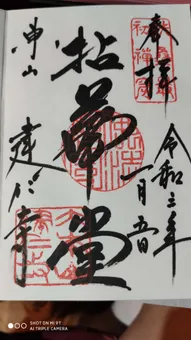 奉拝
令和三年
一月五日
拈華堂
東山
建仁寺
SHOT ON MI 9T
AI TRIPLE CAMERA